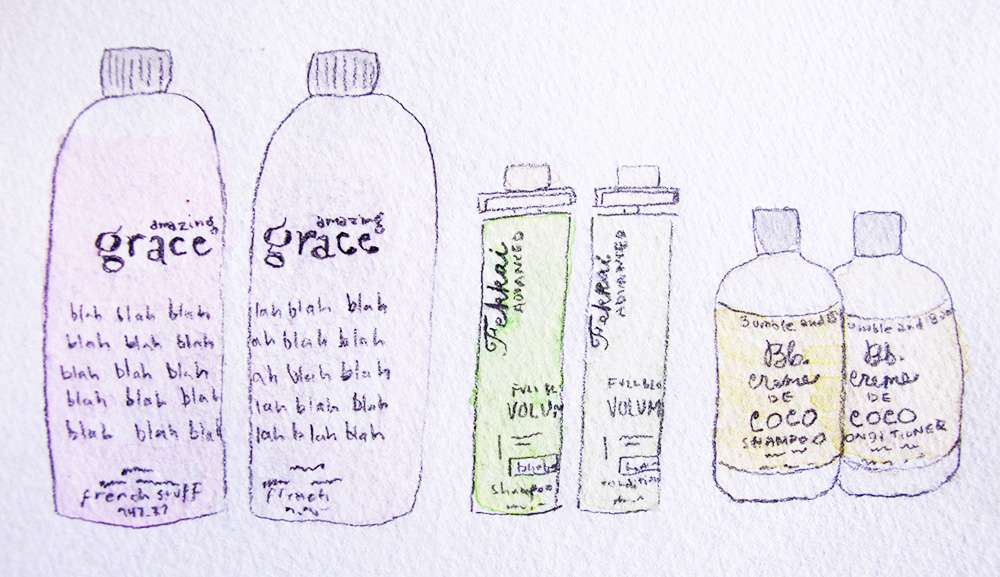 amazing
grace
blah blah blah
blah blah blah
blah blah blah
blah blah blah
blah blah blah
french stuff
amazing
grace
lah blah blah
ah blah blah
ah blah blah
lah blah blah
lah blah blah
french
Fekkai
ADVANCED
FULL BL
VOLUM
shampoo
Fekkai
ADVANCED
FULL BLO
VOLUM
Bumble and B
Bb.
creme
DE
COCO
SHAMPOO
umble and B
Bb.
creme
DE
COCO
ONDITIONER